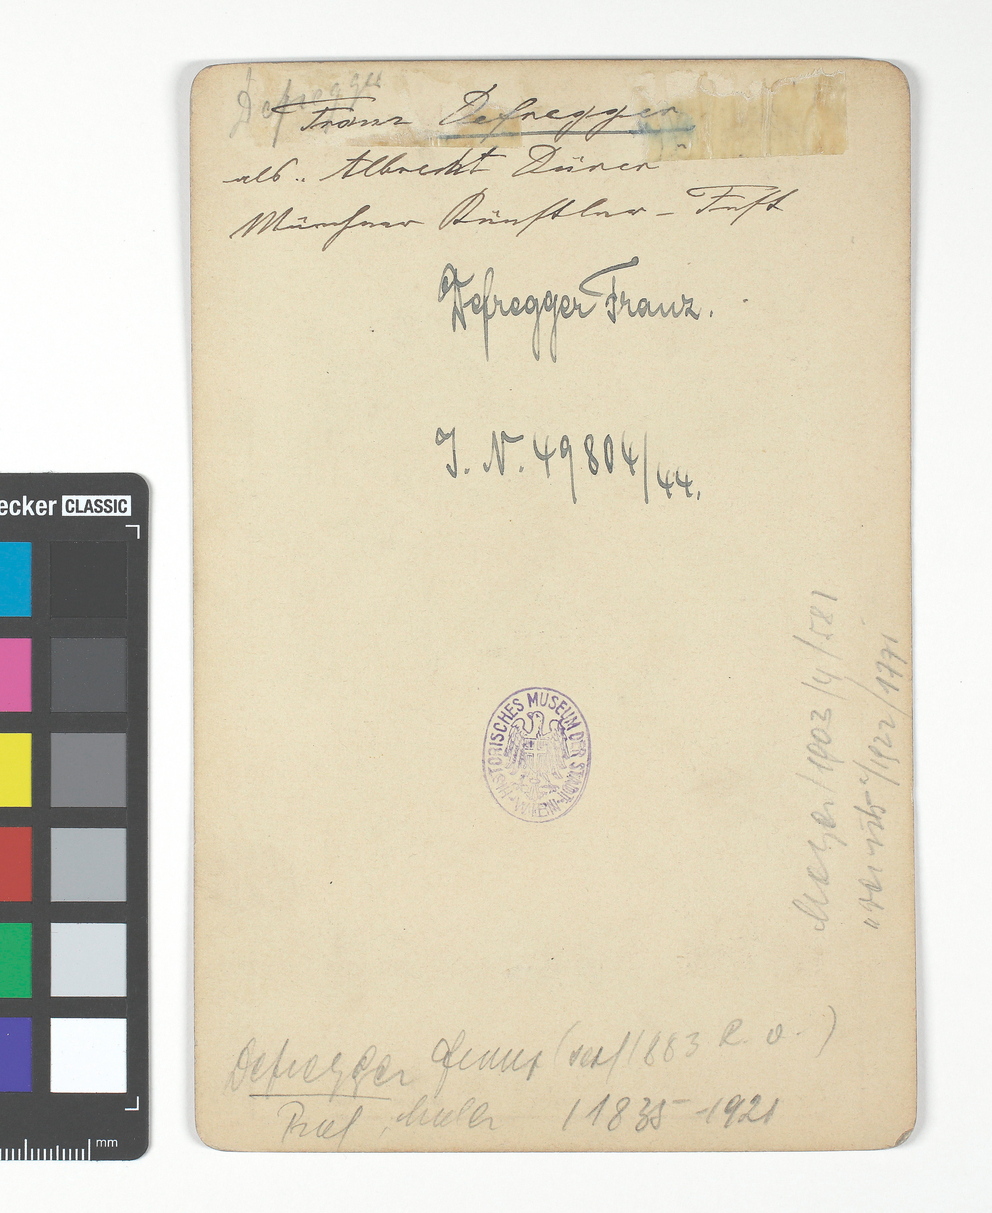 Defregger
Franz Defregger
als „Albrecht Dürer"
Münchner Künstler-Fest
Defregger Franz.
J. N. 49804/44.
HISTORISCHES MUSEUM DER STADT WIEN
/1903/4/581
"/1922/1771
Defregger Franz (seit 1883 R. v. )
Prof. Maler / 1835-1921
ecker CLASSIC
mm